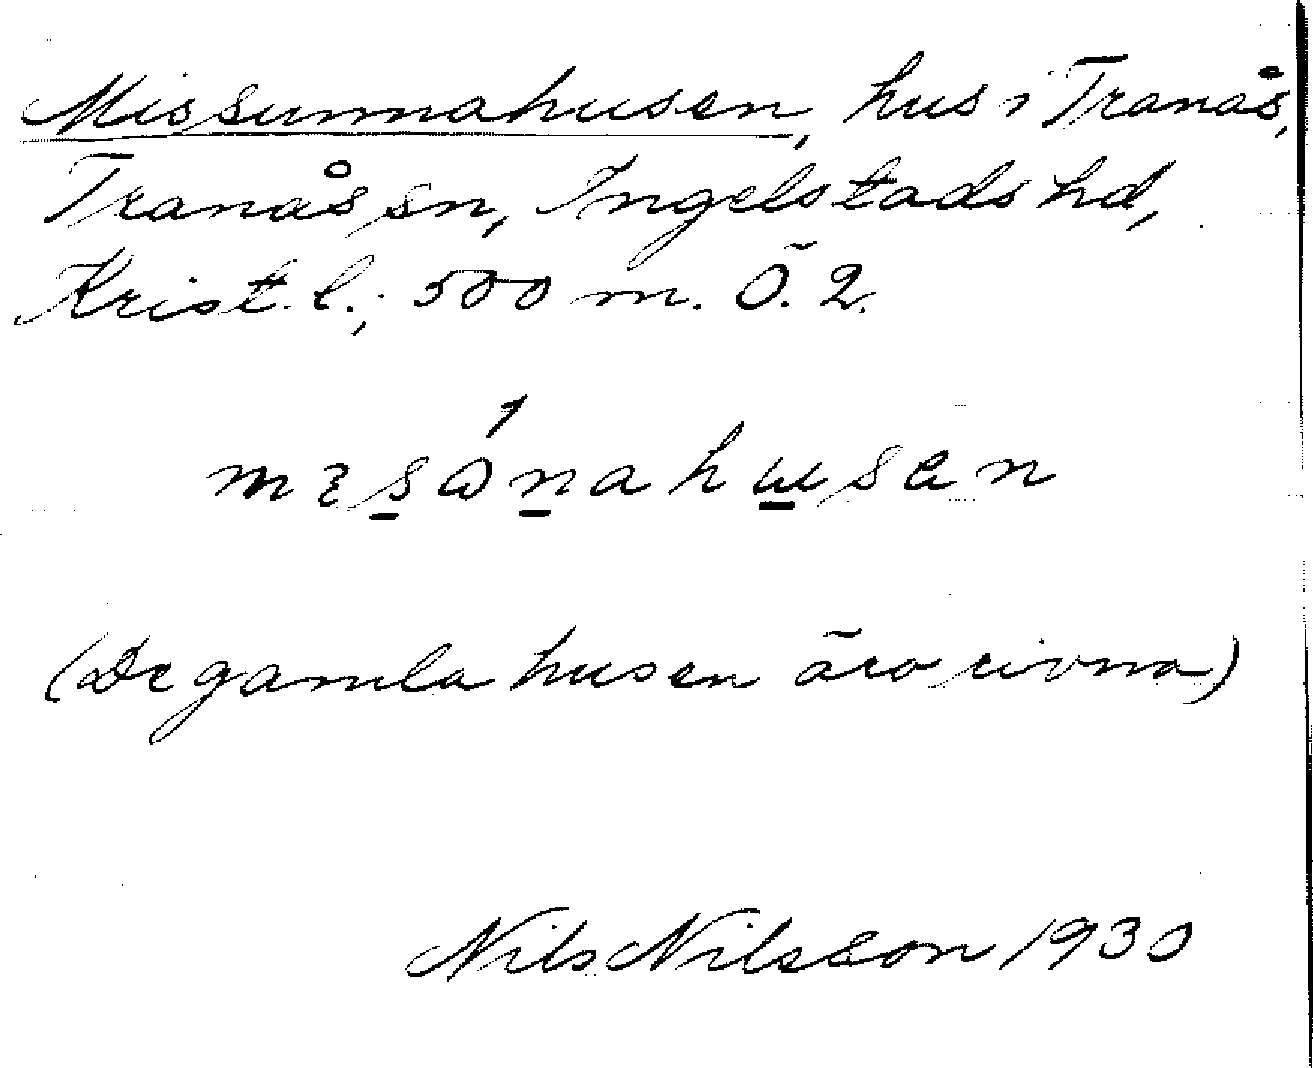 Missunnahusen, hus i Tranås,
Tranås sn, Ingelstads hd,
Krist. l.; 500 m. Ö. 2.
mɛs̲ώn̲ahu̲sɐn
(De gamla husen äro rivna)
Nils Nilsson 1930